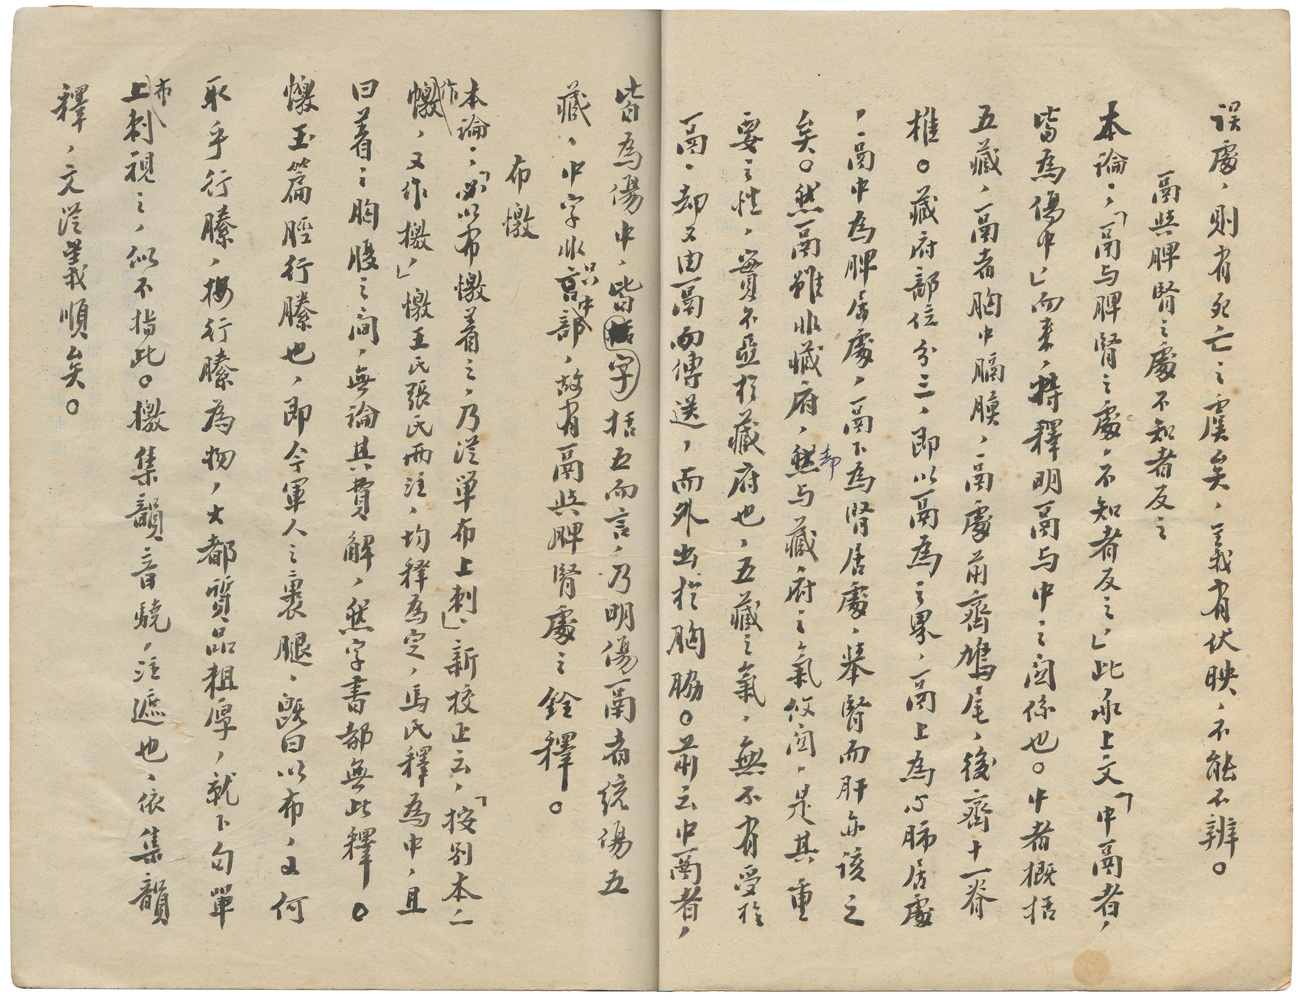 误處，則有死亡之虞矣，義有伏映，不能不辨。
鬲與脾腎之處不知者反之
本論，「鬲与脾腎之處，不知者反之」此承上文「中鬲者，
皆為傷中」而来，特釋明鬲与中之関係也。中者概括
五藏，鬲者胸中膈膜，鬲處前齊鳩尾，後齊十一脊
椎。藏府部位分三，即以鬲為之界，鬲上為心肺居處
，鬲中為脾居處，鬲下為腎居處，舉腎而肝亦该之
矣。然鬲雖非臟府，却与藏府之氣攸関，是其重
要之性，實不亞於藏府也，五藏之氣，無不有受於
鬲，却又由鬲而傳送，而外出於胸脇。前云中鬲者，
皆為傷中，皆字括五而言，乃明傷鬲者統傷五
藏，中字非只言中部，故有鬲與脾腎處之銓釋。
布憿
本論，「必以布憿着之，乃從単布上刺」，新校正云，「按别本一作
憿，又作撽」憿王氏張氏兩注，均釋為定，馬氏釋為中，且
曰着之胸腹之间，無論其費解，然字書都無此釋。
憿玉篇脛行縢也，即今軍人之裹腿，既曰以布，又何
取乎行縢，按行縢為物，大都質品粗厚，就下句單布
上刺視之，似不指此。撽集韻音驍，注遮也，依集韻
釋，文從義順矣。